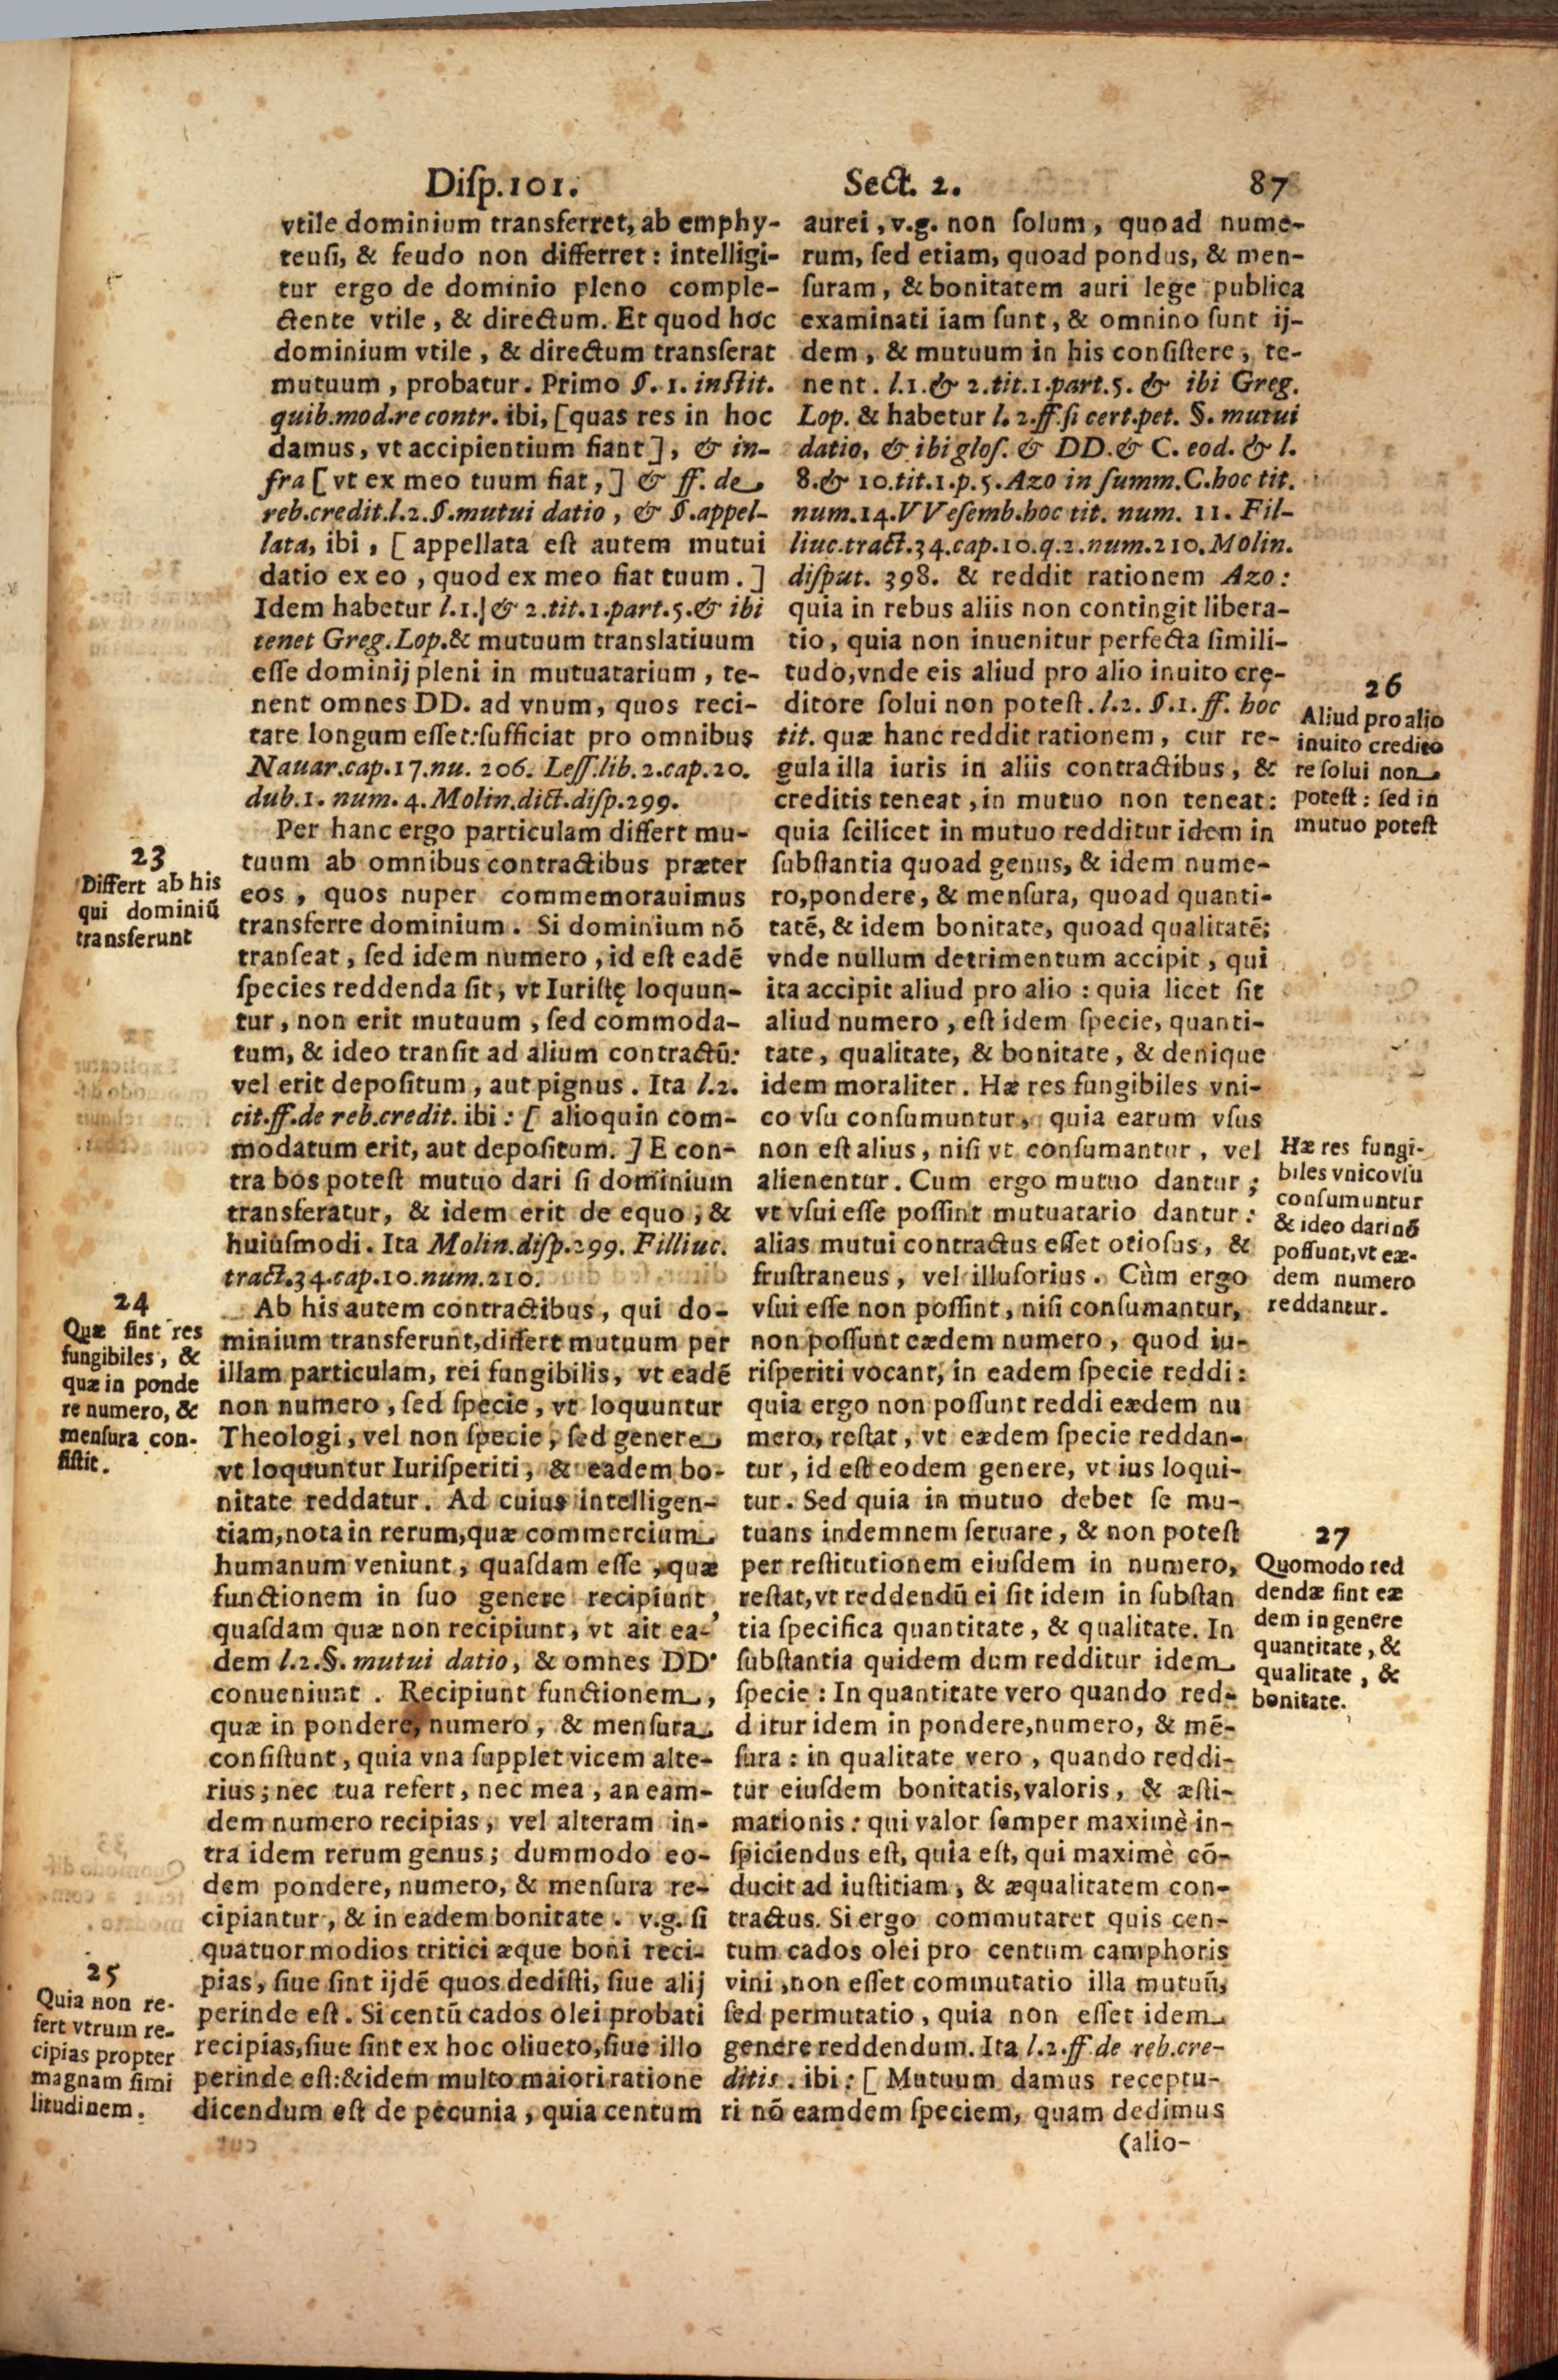 Disp.101. Sect. 2. 87
vtile dominium transferret, ab emphy-
teusi, & feudo non differret: intelligi-
tur ergo de dominio pleno comple-
ctente vtile, & directum. Et quod hoc
dominium vtile, & directum transferat
mutuum, probatur. Primo §. 1. instit.
quib.mod.re contr. ibi, [quas res in hoc
damus, vt accipientium fiant], & in-
fra [vt ex meo tuum fiat,] & ff. de
reb.credit.l.2.§.mutui datio, & §.appel-
lata, ibi, [appellata est autem mutui
datio ex eo, quod ex meo fiat tuum.]
Idem habetur l.1.] & 2.tit.1.part.5.& ibi
tenet Greg.Lop.& mutuum translatiuum
esse dominij pleni in mutuatarium, te-
nent omnes DD. ad vnum, quos reci-
tare longum esset:sufficiat pro omnibus
Nauar.cap.17.nu. 206. Less.lib.2.cap.20.
dub.1. num.4.Molin.dict.disp.299.
Per hanc ergo particulam differt mu-
tuum ab omnibus contractibus præter
eos, quos nuper commemorauimus
transferre dominium. Si dominium nō
transeat, sed idem numero, id est eadē
species reddenda sit, vt Iuristę loquun-
tur, non erit mutuum, sed commoda-
tum, & ideo transit ad alium contractū:
vel erit depositum, aut pignus. Ita l.2.
cit.ff.de reb.credit. ibi: [alioquin com-
modatum erit, aut depositum.] E con-
tra bos potest mutuo dari si dominium
transferatur, & idem erit de equo, &
huiusmodi. Ita Molin.disp.299. Filliuc.
tract.34.cap.10.num.210.
Ab his autem contractibus, qui do-
minium transferunt,differt mutuum per
illam particulam, rei fungibilis, vt eadē
non numero, sed specie, vt loquuntur
Theologi, vel non specie, sed genere
vt loquuntur Iurisperiti, & eadem bo-
nitate reddatur. Ad cuius intelligen-
tiam,nota in rerum,quæ commercium
humanum veniunt, quasdam esse, quæ
functionem in suo genere recipiunt,
quasdam quæ non recipiunt, vt ait ea-
dem l.2.§. mutui datio, & omnes DD.
conueniunt. Recipiunt functionem,
quæ in pondere, numero, & mensura
consistunt, quia vna supplet vicem alte-
rius; nec tua refert, nec mea, an eam-
dem numero recipias, vel alteram in-
tra idem rerum genus; dummodo eo-
dem pondere, numero, & mensura re-
cipiantur, & in eadem bonitate. v.g. si
quatuor modios tritici æque boni reci-
pias, siue sint ijdē quos dedisti, siue alij
perinde est. Si centū cados olei probati
recipias,siue sint ex hoc oliueto,siue illo
perinde est:&idem multo maiori ratione
dicendum est de pecunia, quia centum
23
Differt ab his
qui dominiū
transferunt
24
Quæ sint res
fungibiles, &
quæ in ponde
re numero, &
mensura con-
sistit.
25
Quia non re-
fert vtrum re-
cipias propter
magnam simi
litudinem.
aurei, v.g. non solum, quoad nume-
rum, sed etiam, quoad pondus, & men-
suram, & bonitatem auri lege publica
examinati iam sunt, & omnino sunt ij-
dem, & mutuum in his consistere, te-
nent. l.1.& 2.tit.1.part.5. & ibi Greg.
Lop. & habetur l.2.ff.si cert.pet. §. mutui
datio, & ibi glos. & DD.& C. eod. & l.
8.& 10.tit.1.p.5.Azo in summ.C.hoc tit.
num.14.VVesemb.hoc tit. num. 11. Fil-
liuc.tract.34.cap.10.q.2.num.210.Molin.
disput. 398. & reddit rationem Azo:
quia in rebus aliis non contingit libera-
tio, quia non inuenitur perfecta simili-
tudo,vnde eis aliud pro alio inuito crę-
ditore solui non potest. l.2. §.1. ff. hoc
tit. quæ hanc reddit rationem, cur re-
gula illa iuris in aliis contractibus, &
creditis teneat, in mutuo non teneat:
quia scilicet in mutuo redditur idem in
substantia quoad genus, & idem nume-
ro,pondere, & mensura, quoad quanti-
tatē, & idem bonitate, quoad qualitatē;
vnde nullum detrimentum accipit, qui
ita accipit aliud pro alio: quia licet sit
aliud numero, est idem specie, quanti-
tate, qualitate, & bonitate, & denique
idem moraliter. Hæ res fungibiles vni-
co vsu consumuntur, quia earum vsus
non est alius, nisi vt consumantur, vel
alienentur. Cum ergo mutuo dantur;
vt vsui esse possint mutuatario dantur:
alias mutui contractus esset otiosus, &
frustraneus, vel illusorius. Cùm ergo
vsui esse non possint, nisi consumantur,
non possunt eædem numero, quod iu-
risperiti vocant, in eadem specie reddi:
quia ergo non possunt reddi eædem nu
mero, restat, vt eædem specie reddan-
tur, id est eodem genere, vt ius loqui-
tur. Sed quia in mutuo debet se mu-
tuans indemnem seruare, & non potest
per restitutionem eiusdem in numero,
restat,vt reddendū ei sit idem in substan
tia specifica quantitate, & qualitate. In
substantia quidem dum redditur idem
specie: In quantitate vero quando red-
ditur idem in pondere,numero, & mē-
sura: in qualitate vero, quando reddi-
tur eiusdem bonitatis,valoris, & æsti-
mationis: qui valor semper maximè in-
spiciendus est, quia est, qui maximè cō-
ducit ad iustitiam, & æqualitatem con-
tractus. Si ergo commutaret quis cen-
tum cados olei pro centum camphoris
vini,non esset commutatio illa mutuū,
sed permutatio, quia non esset idem
genere reddendum. Ita l.2.ff de reb.cre-
ditis. ibi: [Mutuum damus receptu-
ri nō eamdem speciem, quam dedimus
(alio-
26
Aliud pro alio
inuito credito
re solui non
potest: sed in
mutuo potest
Hæ res fungi-
biles vnico vsu
consumuntur
& ideo dari nō
possunt,vt eæ-
dem numero
reddantur.
27
Quomodo red
dendæ sint eæ
dem in genere
quantitate, &
qualitate, &
bonitate.